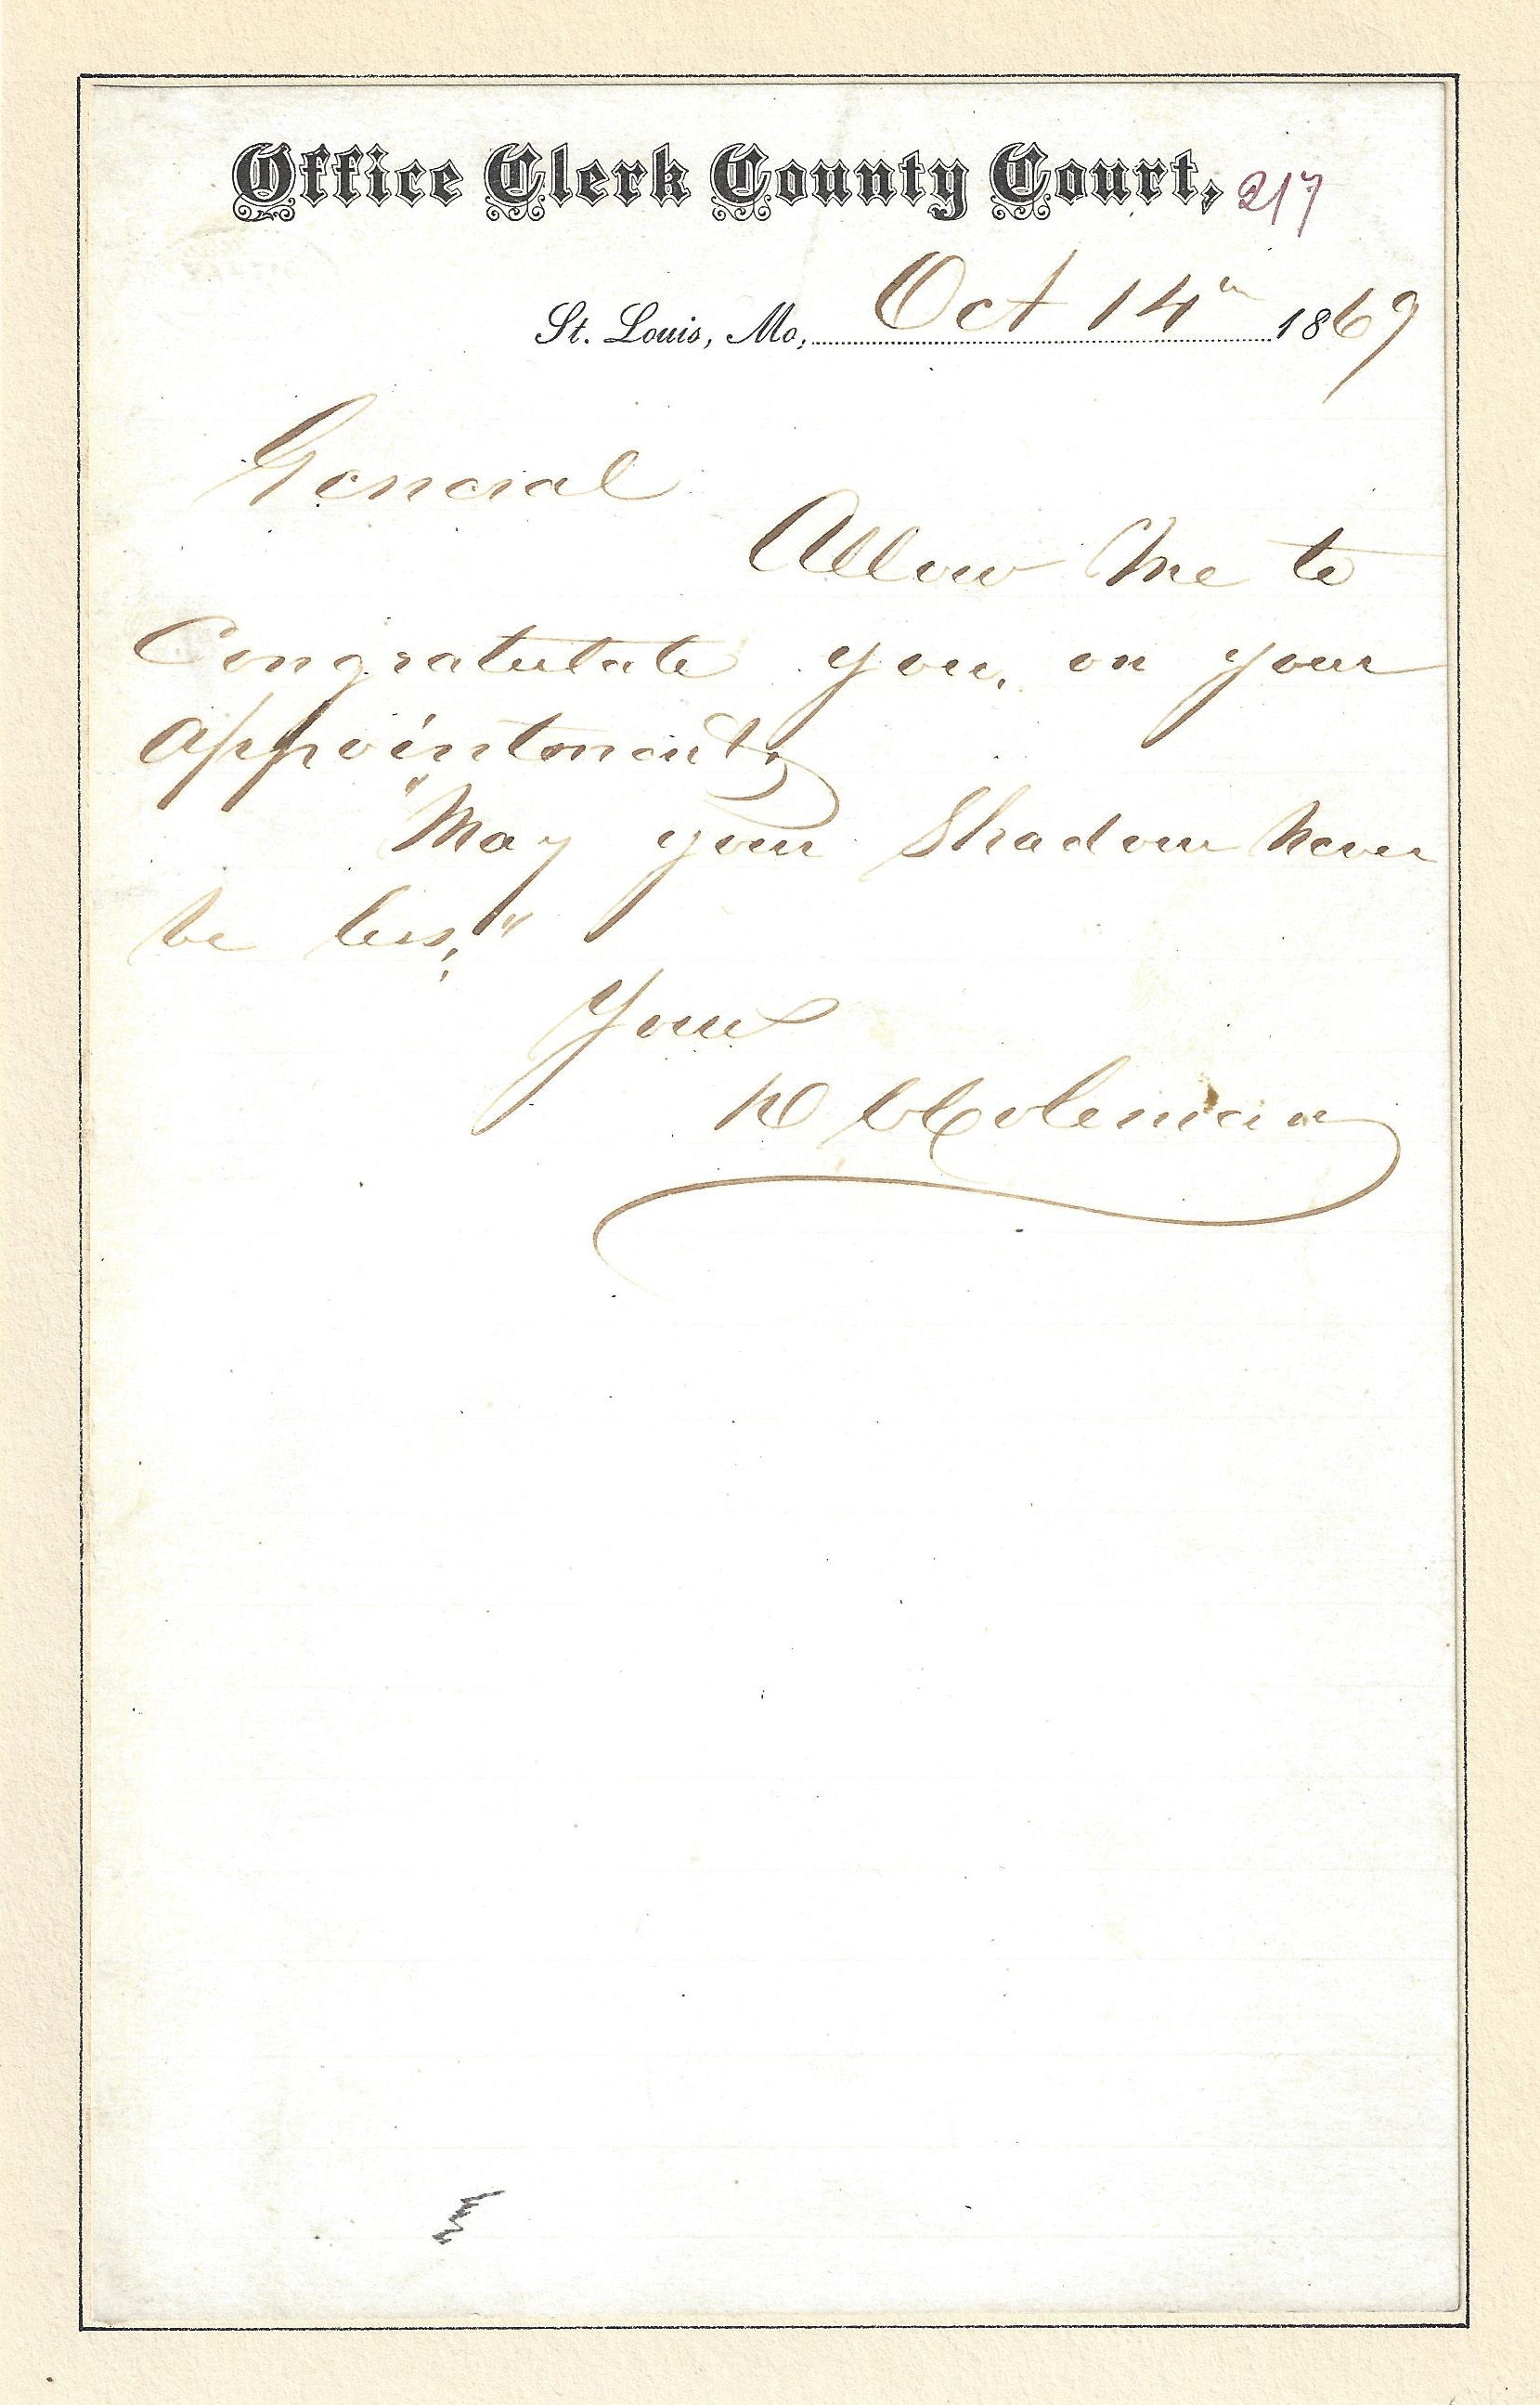 Office Clerk County Court, 217
St. Louis, Mo, Oct 14th 1869
General
Allow Me to
Congratulate you, on your
appointment,
"May your Shadow Never
be less,"
Yours
Coleman